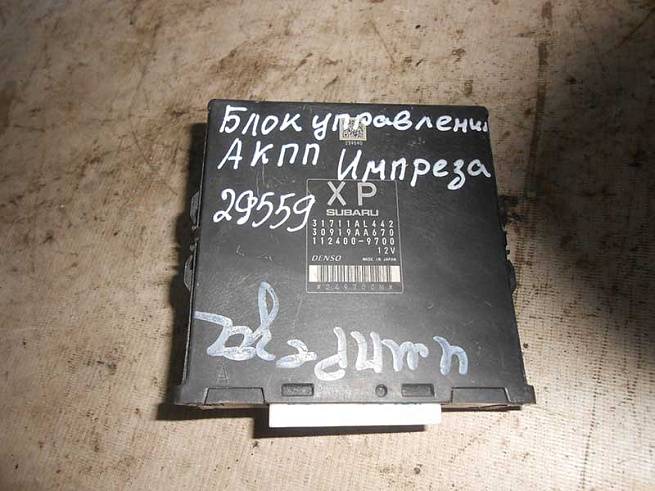 Блок управления
АКПП Импреза
29559
XP
SUBARU
31711AL442
30919AA670
112400-9700
12V
DENSO MADE IN JAPAN